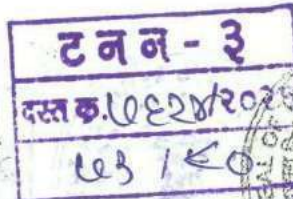 ट न न - ३
दस्त क्र. ७६२४/२०२
७३ / ८०